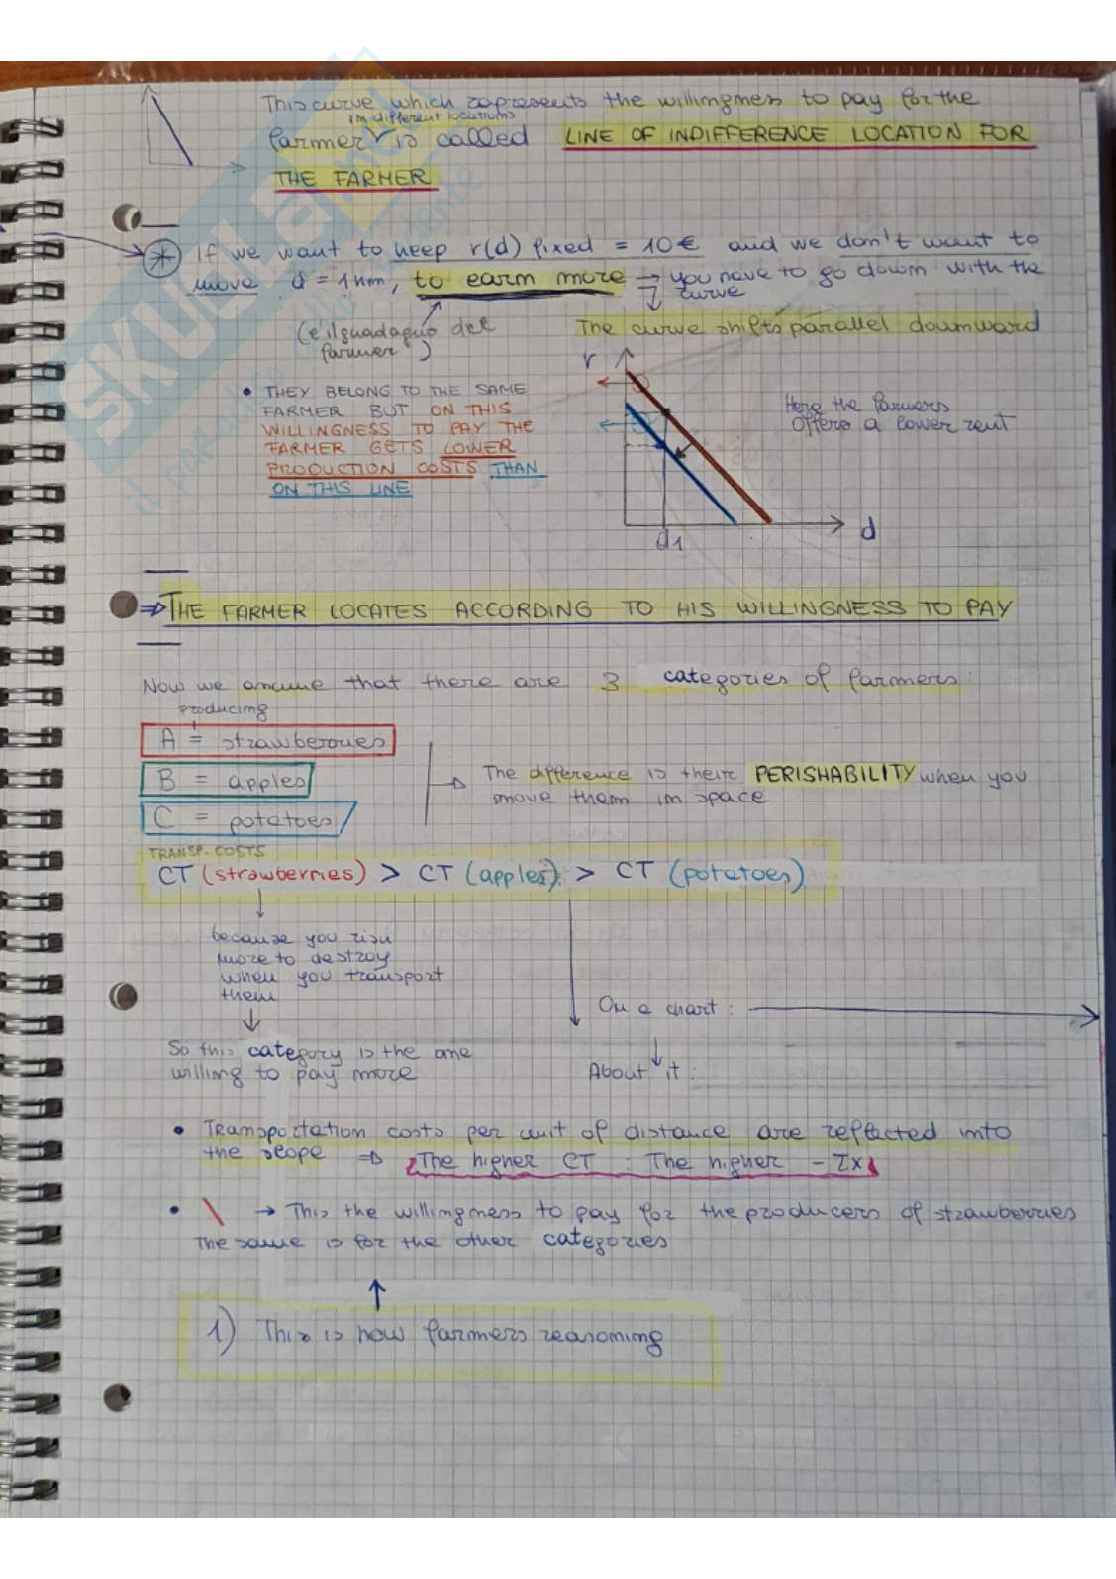 This curve which represents the willingness to pay for the
in different locations
farmer is called LINE OF INDIFFERENCE LOCATION FOR
THE FARMER
* If we want to keep r(d) fixed = 10€ and we don't want to
move d = 1km, to earn more → you have to go down with the
curve
(è il guadagno del
farmer)
The curve shifts parallel downward
r
• THEY BELONG TO THE SAME
FARMER BUT ON THIS
WILLINGNESS TO PAY THE
FARMER GETS LOWER
PRODUCTION COSTS THAN
ON THIS LINE
Here the farmers
offers a lower rent
d1
d
⇒ THE FARMER LOCATES ACCORDING TO HIS WILLINGNESS TO PAY
Now we assume that there are 3 categories of farmers:
producing
A = strawberries
B = apples
C = potatoes
The difference is their PERISHABILITY when you
move them in space
TRANSP. COSTS
CT (strawberries) > CT (apples) > CT (potatoes)
because you risk
more to destroy
when you transport
them
↓
So this category is the one
willing to pay more
On a chart:
About it:
• Transportation costs per unit of distance are reflected into
the slope ⇒ The higher CT : The higher - τx
• \ → This the willingness to pay for the producers of strawberries
The same is for the other categories
↑
1) This is how farmers reasoning
SKUOLA